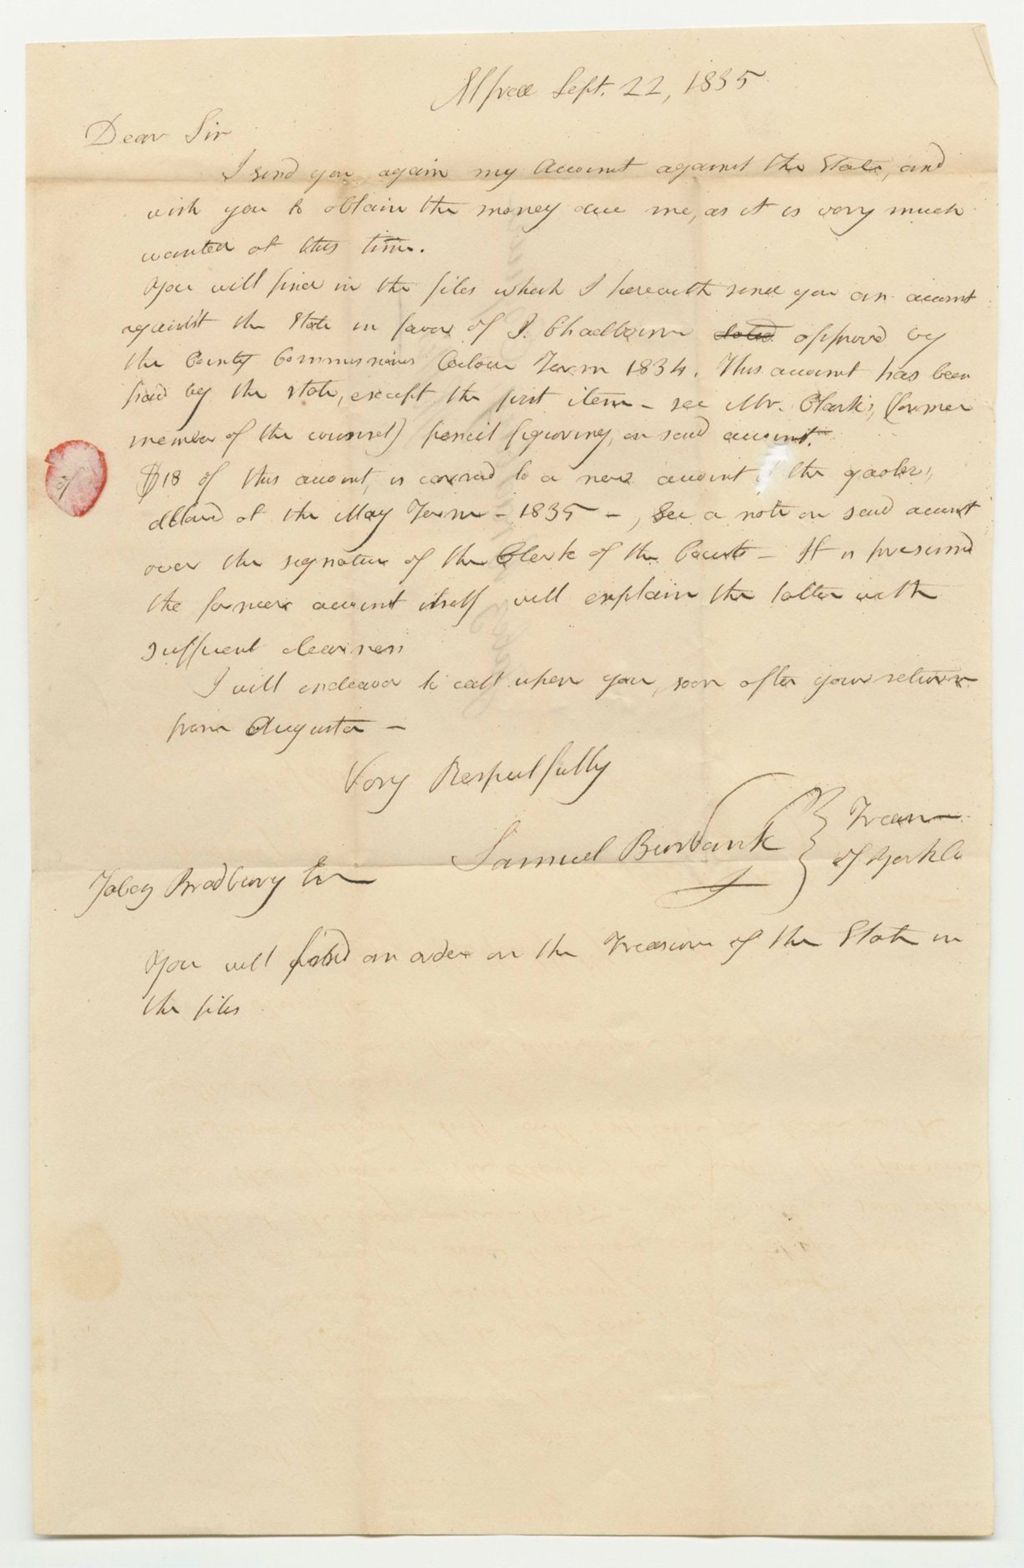 Alfred Sept. 22, 1835
Dear Sir
I send you again my Account against the State, and
wish you to obtain the money due me, as it is very much
wanted at this time.
You will find in the files which I herewith send you an account
against the State in favor of I. Chadbourn approved by
the County Commissioners October Term 1834. This account has been
paid by the state, except the first item - see Mr. Clark's, (former
member of the counsel) pencil figuring, on said account.
$18 of this account, is carried to a new account the gaoler,
dated at the May Term - 1835 - , See a note on said account
over the signature of the Clerk of the Courts - It is presumed
the former account itself will explain the latter with
sufficient clearness
I will endeavor to call upon you, soon after your return
from Augusta -
Very Respectfully
Samuel Burbank } Treas
of York Co
Jabez Bradbury Esr
You will find an order on the Treasurer of the State in
the files